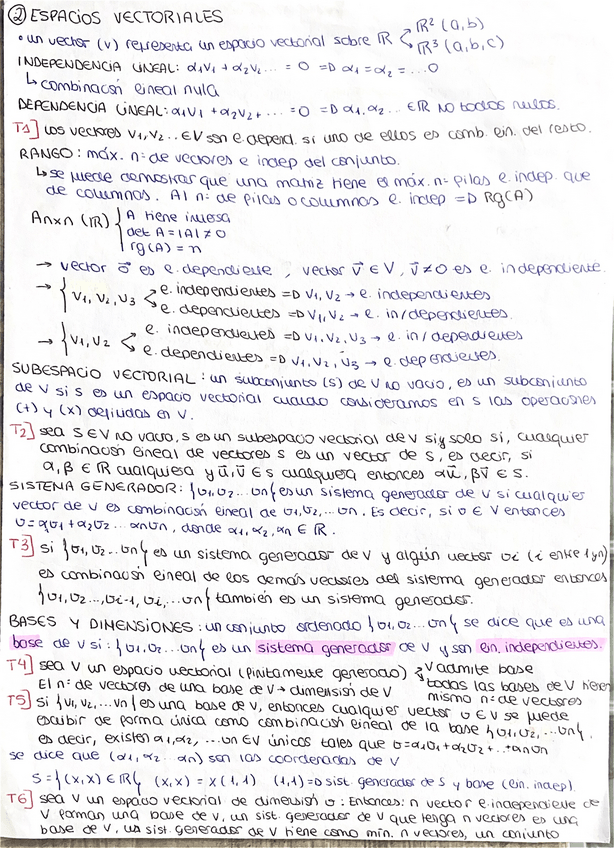 ② ESPACIOS VECTORIALES
ℝ² (a,b)
• un vector (v) representa un espacio vectorial sobre ℝ
ℝ³ (a,b,c)
INDEPENDENCIA LINEAL: α1v1 + α2v2 ... = 0 => α1 = α2 = ...0
↳ combinación lineal nula
DEPENDENCIA LINEAL: α1v1 + α2v2 + ... = 0 => α1, α2 ... ∈ ℝ NO todos nulos.
T1] Los vectores v1, v2 .. ∈ V son l. depend. si uno de ellos es comb. lin. del resto.
RANGO: máx. nº de vectores l. indep del conjunto.
↳ se puede demostrar que una matriz tiene el máx. nº filas l. indep. que
de columnas. Al nº de filas o columnas l. indep => Rg(A)
Anxn (ℝ) { A tiene inversa
det A = |A| ≠ 0
rg(A) = n
→ vector o⃗ es l. dependiente, vector v⃗ ∈ V, v⃗ ≠ 0 es l. independiente.
→ { v1, v2, v3 l. independientes => v1, v2 → l. independientes
l. dependientes => v1, v2 → l. in/dependientes.
→ { v1, v2 l. independientes => v1, v2, v3 → l. in/dependientes
l. dependientes => v1, v2, v3 → l. dependientes.
SUBESPACIO VECTORIAL: un subconjunto (s) de V no vacío, es un subconjunto
de V si s es un espacio vectorial cuando consideramos en s las operaciones
(+) y (x) definidas en V.
T2] sea S ∈ V no vacío, s es un subespacio vectorial de V si y solo si, cualquier
combinación lineal de vectores s es un vector de s, es decir, si
α, β ∈ ℝ cualquiera y u⃗, v⃗ ∈ s cualquiera entonces αu⃗, βv⃗ ∈ s.
SISTEMA GENERADOR: {v1, v2 ... vn} es un sistema generador de V si cualquier
vector de V es combinación lineal de v1, v2, ... vn. Es decir, si v ∈ V entonces
v = α1v1 + α2v2 ... αnvn, donde α1, α2, αn ∈ ℝ.
T3] si {v1, v2 ... vn} es un sistema generador de V y algún vector vi (i entre 1 y n)
es combinación lineal de los demás vectores del sistema generador entonces
{v1, v2 ..., vi-1, vi, ... vn} también es un sistema generador.
BASES Y DIMENSIONES: un conjunto ordenado {v1, v2 ... vn} se dice que es una
base de V si: {v1, v2 ... vn} es un sistema generador de V y son lin. independientes.
T4] sea V un espacio vectorial (finitamente generado) { V admite base
El nº de vectores de una base de V → dimensión de V todas las bases de V tienen
mismo nº de vectores
T5] si {v1, v2, ... vn} es una base de V, entonces cualquier vector v ∈ V se puede
escribir de forma única como combinación lineal de la base {v1, v2, ... vn},
es decir, existen α1, α2, ... vn ∈ V únicos tales que v = α1v1 + α2v2 + ... + αnvn
se dice que (α1, α2 ... αn) son las coordenadas de V
S = {(x,x) ∈ ℝ} (x,x) = x(1,1) (1,1) => sist. generador de S y base (lin. indep).
T6] sea V un espacio vectorial de dimensión : Entonces: n vector l. independiente de
V forman una base de V, un sist. generador de V que tenga n vectores es una
base de V, un sist. generador de V tiene como mín. n vectores, un conjunto